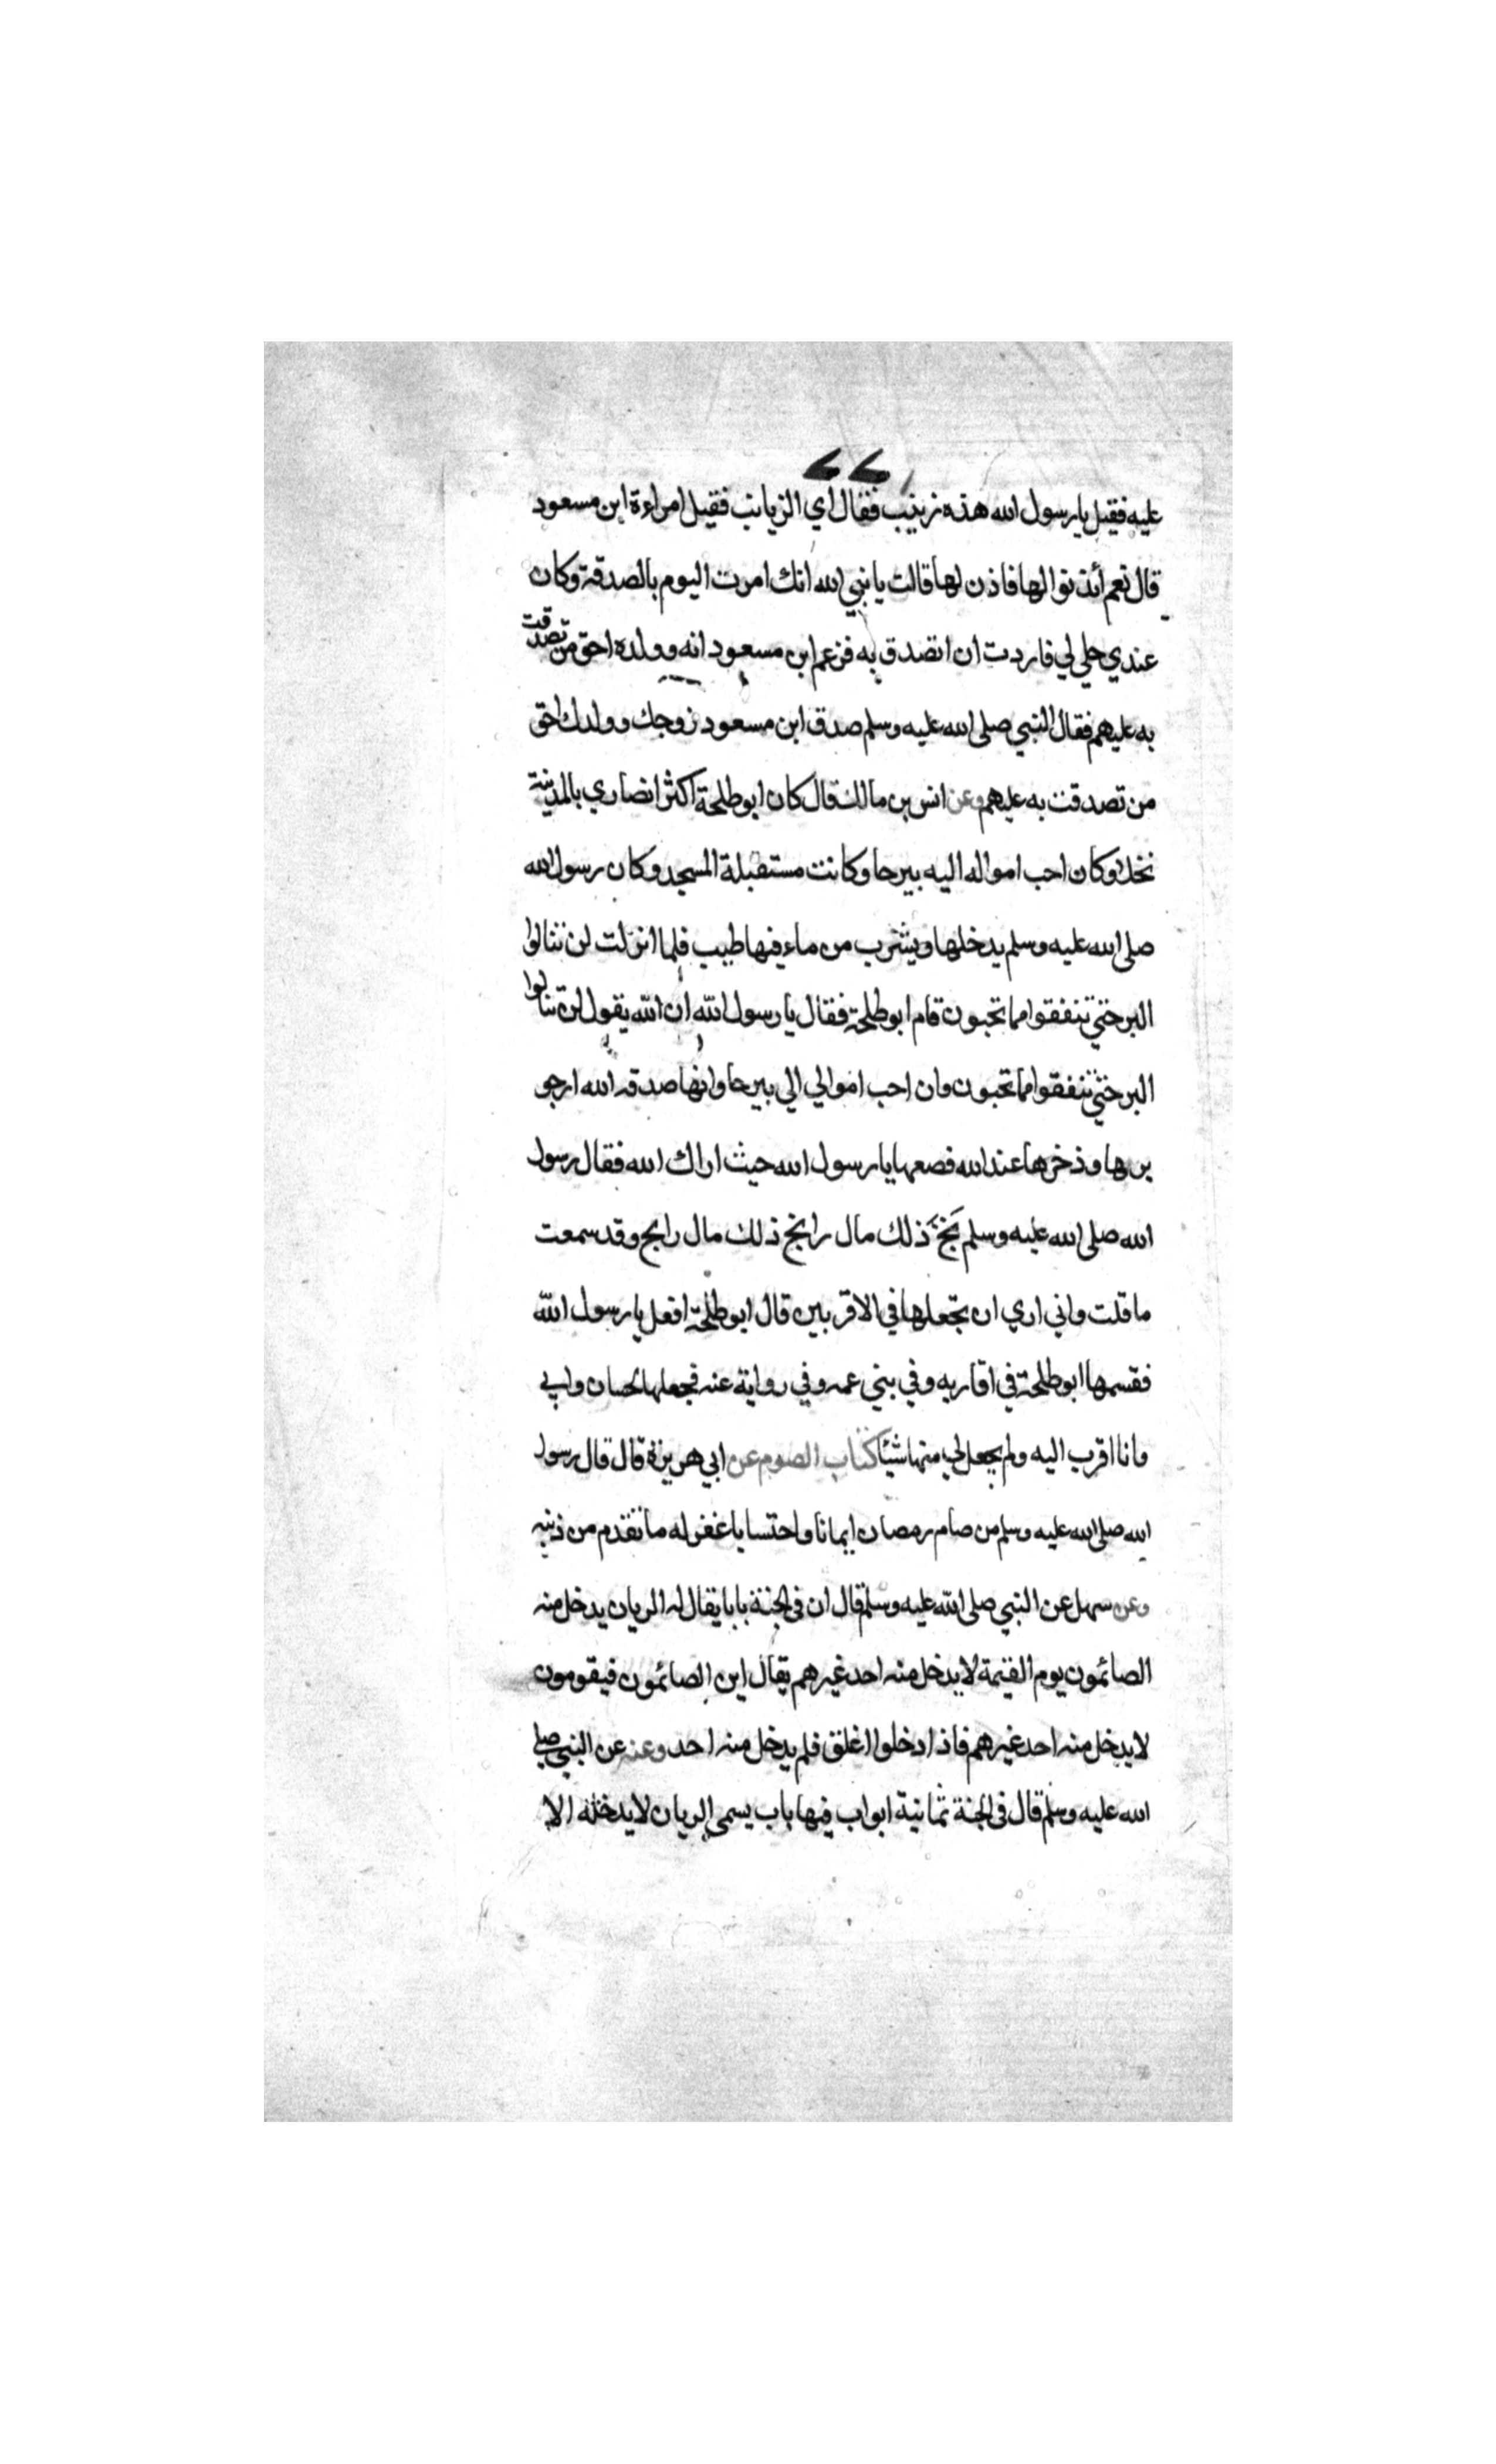 عليه فقيل يا رسول الله هذه زينب فقال اي الزيانب فقيل امراءة ابن مسعود
قال نعم ائذنوا لها فاذن لها قالت يا نبي الله انك امرت اليوم بالصدقة وكان
عندي حلي لي فاردت ان اتصدق به فزعم ابن مسعود انه وولده احق من تصدقت
به عليهم فقال النبي صلى الله عليه وسلم صدق ابن مسعود زوجك وولدك احق
من تصدقت به عليهم وعن انس بن مالك قال كان ابو طلحة اكثر انصاري بالمدينة
نخلا وكان احب امواله اليه بيرحا وكانت مستقبلة المسجد وكان رسول الله
صلى الله عليه وسلم يدخلها ويشرب من ماء فيها طيب فلما انزلت لن تنالوا
البر حتي تنفقوا مما تحبون قام ابو طلحة فقال يا رسول الله ان الله يقول لن تنالوا
البر حتي تنفقوا مما تحبون وان احب اموالي الي بيرحا وانها صدقه الله ارجو
برها وذخرها عند الله فصعها يا رسول الله حيث اراك الله فقال رسول
الله صلى الله عليه وسلم بخ ذلك مال رابح ذلك مال رابح وقد سمعت
ما قلت واني اري ان تجعلها في الاقربين قال ابو طلحة افعل يا رسول الله
فقسمها ابو طلحة في اقاربه وفي بني عمه وفي رواية عنه فجعلها لحسان وابي
وانا اقرب اليه ولم يجعل لي منها شيئا كتاب الصوم عن ابي هريرة قال قال رسول
الله صلى الله عليه وسلم من صام رمضان ايمانا واحتسابا غفر له ما تقدم من ذنبه
وعن سهل عن النبي صلى الله عليه وسلم قال ان في الجنة بابا يقال له الريان يدخل منه
الصائمون يوم القيمة لا يدخل منه احد غيرهم يقال اين الصائمون فيقومون
لا يدخل منه احد غيرهم فاذا دخلوا اغلق فلم يدخل منه احد وعنه عن النبي صلى
الله عليه وسلم قال في الجنة ثمانية ابواب فيها باب يسمى الريان لا يدخله الا